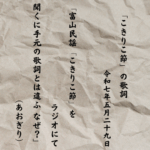 「こきりこ節」の歌詞
令和七年五月二十九日
「富山民謡「こきりこ節」を
ラジオにて
聞くに手元の歌詞とは違ふなぜ?」
あおざり)